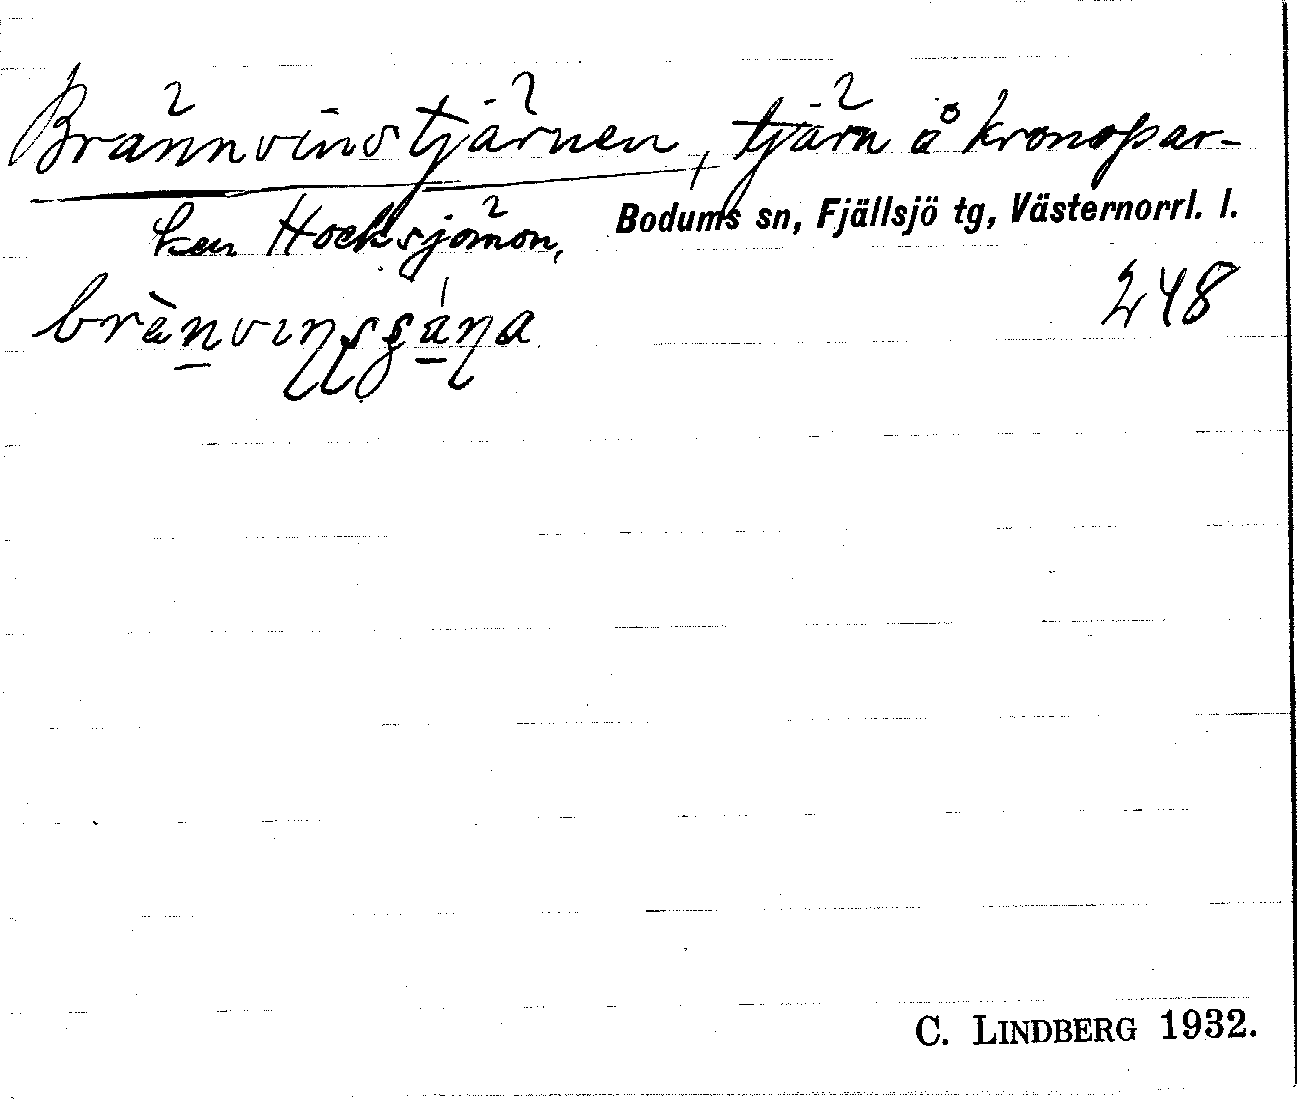 Brännvinstjärnen, tjärn å kronopar-
ken Hocksjömon, Bodums sn, Fjällsjö tg, Västernorrl. l.
248
C. LINDBERG 1932.